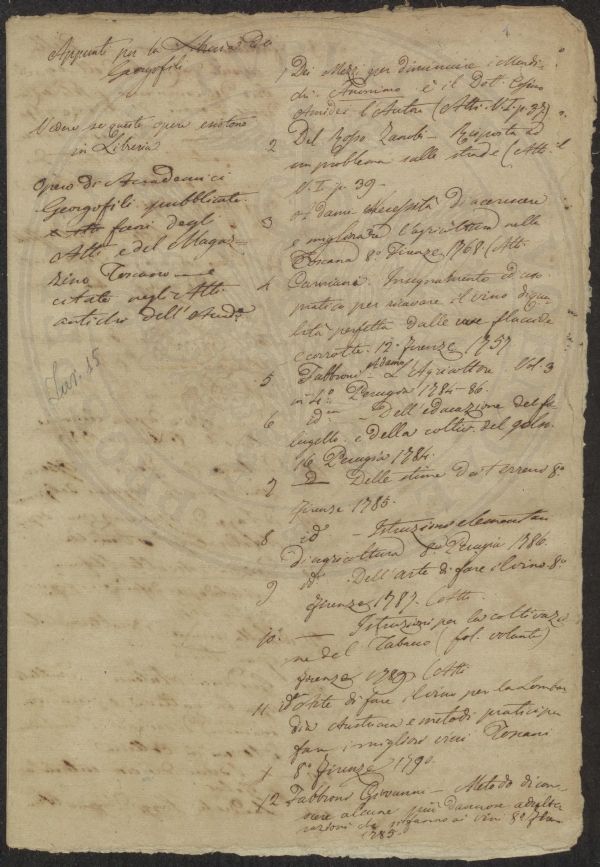 Appunti per la Libreria dei
Georgofili
Vedere se queste opere esistono
in Libreria
Opere di Accademici
Georgofili pubblicate
fuori degli
Atti e del Magaz-
zino Toscano e
citate negli Atti
antichi dell'Accad.a
1
Dei Mezzi per diminuire i Mendi-
chi. Anonimo è il Dot. Cosimo
Amidei l'Autore (Atti. V. I. p. 37)
2 Del Rosso Zanobi - Risposta ad
un problema sulle strade (Atti.
V. I. p. 39.
3 Adami necessità d'accrescere
e migliorare l'agricoltura nella
Toscana 8.° Firenze 1768 (Atti
4 Insegnamento
pratico per ricavare il vino di qua
lità perfetta dalle uve
e corrotte. 12.° Firenze 1757
5 Fabbroni Adamo L'Agricoltore. Vol. 3
in 4.° Perugia 1784-86.
6 id.m - Dell'educazione del fi
lugello, e della coltiv. del gelso.
Perugia 1784.
7 Delle stime de' terreni 8.°
Firenze 1785.
8 id.o - Istruzione elementari
d'agricoltura 8.vo Perugia 1786.
9 id.o Dell'arte di fare il vino 8.°
Firenze 1787. (Atti
10. — Istruzioni per la coltivazio
ne del Tabacco (fol. volante)
Firenze 1789 (Atti
11 id.o Arte di fare il vino per la Lombar
dia Austriaca e metodi pratici per
fare i migliori vini Toscani
8.° Firenze 1790.
12 Fabbroni Giovanni - Metodo di cono
scere alcune più dannose adultera
zioni che si fanno ai vini 8.°
1785.